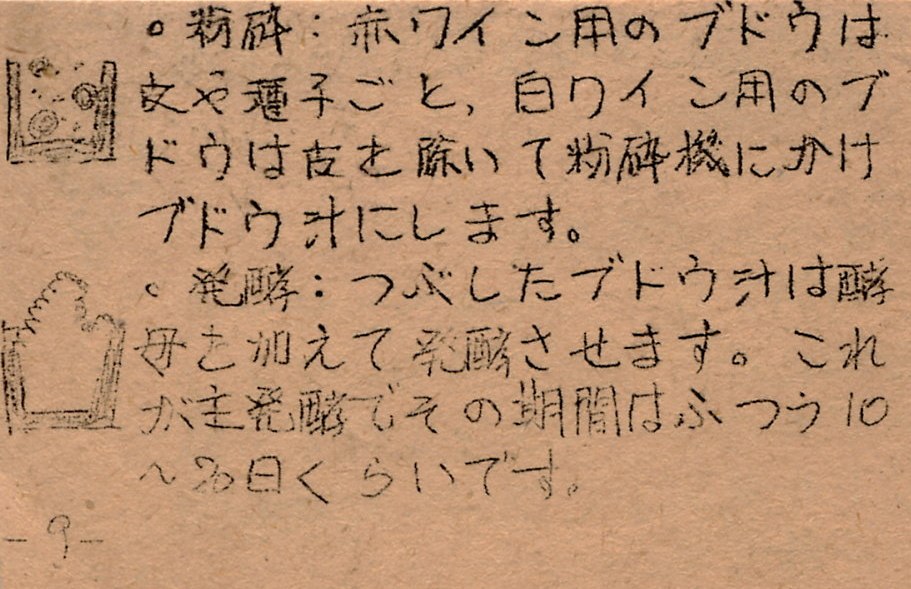 。粉砕：赤ワイン用のブドウは
皮や種子ごと，白ワイン用のブ
ドウは皮を除いて粉砕機にかけ
ブドウ汁にします。
。発酵：つぶしたブドウ汁は酵
母を加えて発酵させます。これ
が主発酵でその期間はふつう10
～20日くらいです。
-9-